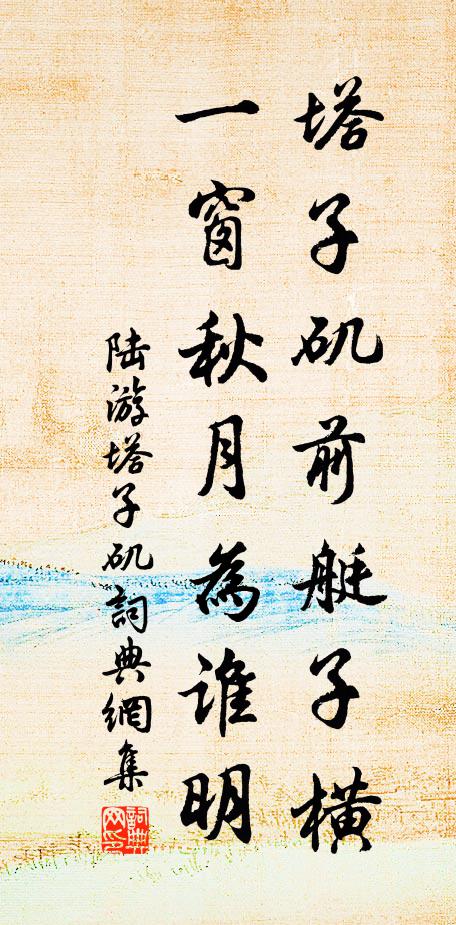 塔子矶前艇子横
一窗秋月為谁明
陆游塔子矶詞典網集
詞典网印